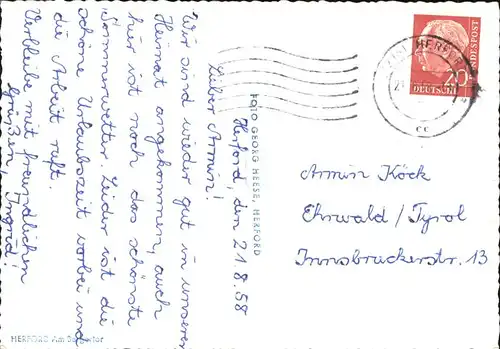 Herford, den 21.8.58
Lieber Armin!
Wir sind wieder gut in unserer
Heimat angekommen, auch
hier ist noch das schönste
Sommerwetter. Leider ist die
schöne Urlaubszeit vorbei und
die Arbeit ruft.
Verbleibe mit freundlichen
Grüßen, Ingrid!
FOTO GEORG HEESE, HERFORD
HERFORD Am Bergertor
HERFORD
cc
20
DEUTSCHE
BUNDESPOST
Armin Köck
Ehrwald/Tyrol
Innsbruckerstr. 13